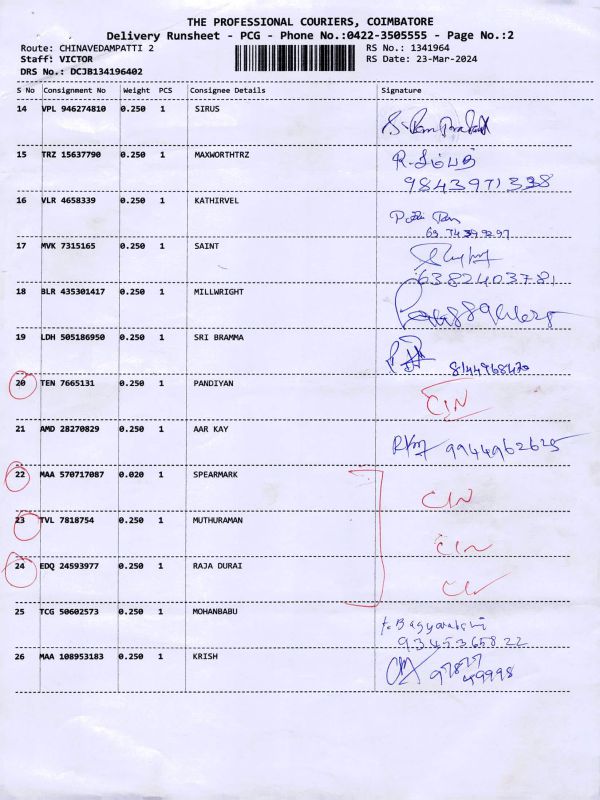 THE PROFESSIONAL COURIERS, COIMBATORE
Delivery Runsheet - PCG - Phone No.:0422-3505555 - Page No.:2
Route: CHINAVEDAMPATTI 2 RS No.: 1341964
Staff: VICTOR RS Date: 23-Mar-2024
DRS No.: DCJB134196402
S No Consignment No Weight PCS Consignee Details Signature
14 VPL 946274810 0.250 1 SIRUS
15 TRZ 15637790 0.250 1 MAXWORTHTRZ
16 VLR 4658339 0.250 1 KATHIRVEL
17 MVK 7315165 0.250 1 SAINT
6382403781
18 BLR 435301417 0.250 1 MILLWRIGHT
19 LDH 505186950 0.250 1 SRI BRAMMA
8144968470
20 TEN 7665131 0.250 1 PANDIYAN
CIN
21 AMD 28270829 0.250 1 AAR KAY
9944962625
22 MAA 570717087 0.020 1 SPEARMARK
CIN
23 TVL 7818754 0.250 1 MUTHURAMAN
CIN
24 EDQ 24593977 0.250 1 RAJA DURAI
25 TCG 50602573 0.250 1 MOHANBABU
9345365822
26 MAA 108953183 0.250 1 KRISH
97877
49998